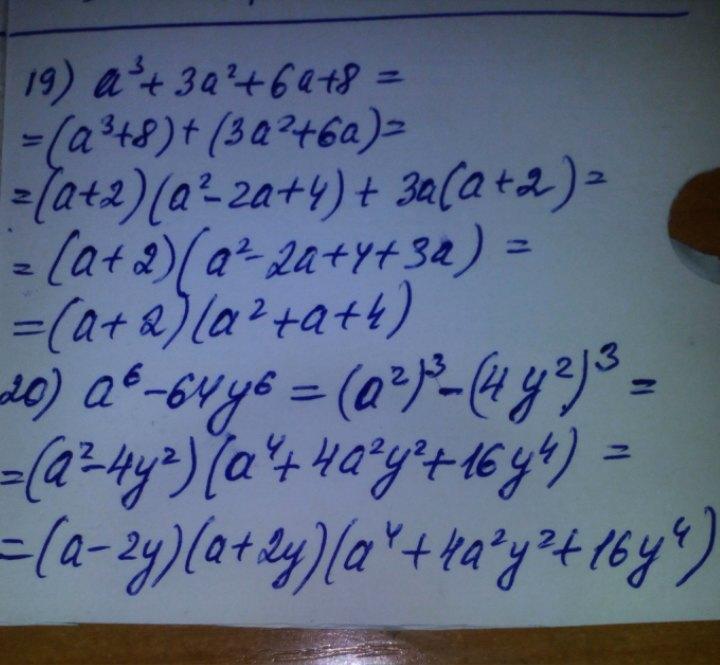 19) a³ + 3a² + 6a + 8 =
= (a³+8) + (3a²+6a) =
= (a+2)(a²-2a+4) + 3a(a+2) =
= (a+2)(a²-2a+4+3a) =
= (a+2)(a²+a+4)
20) a⁶ - 64y⁶ = (a²)³ - (4y²)³ =
= (a²-4y²)(a⁴+4a²y²+16y⁴) =
= (a-2y)(a+2y)(a⁴+4a²y²+16y⁴)